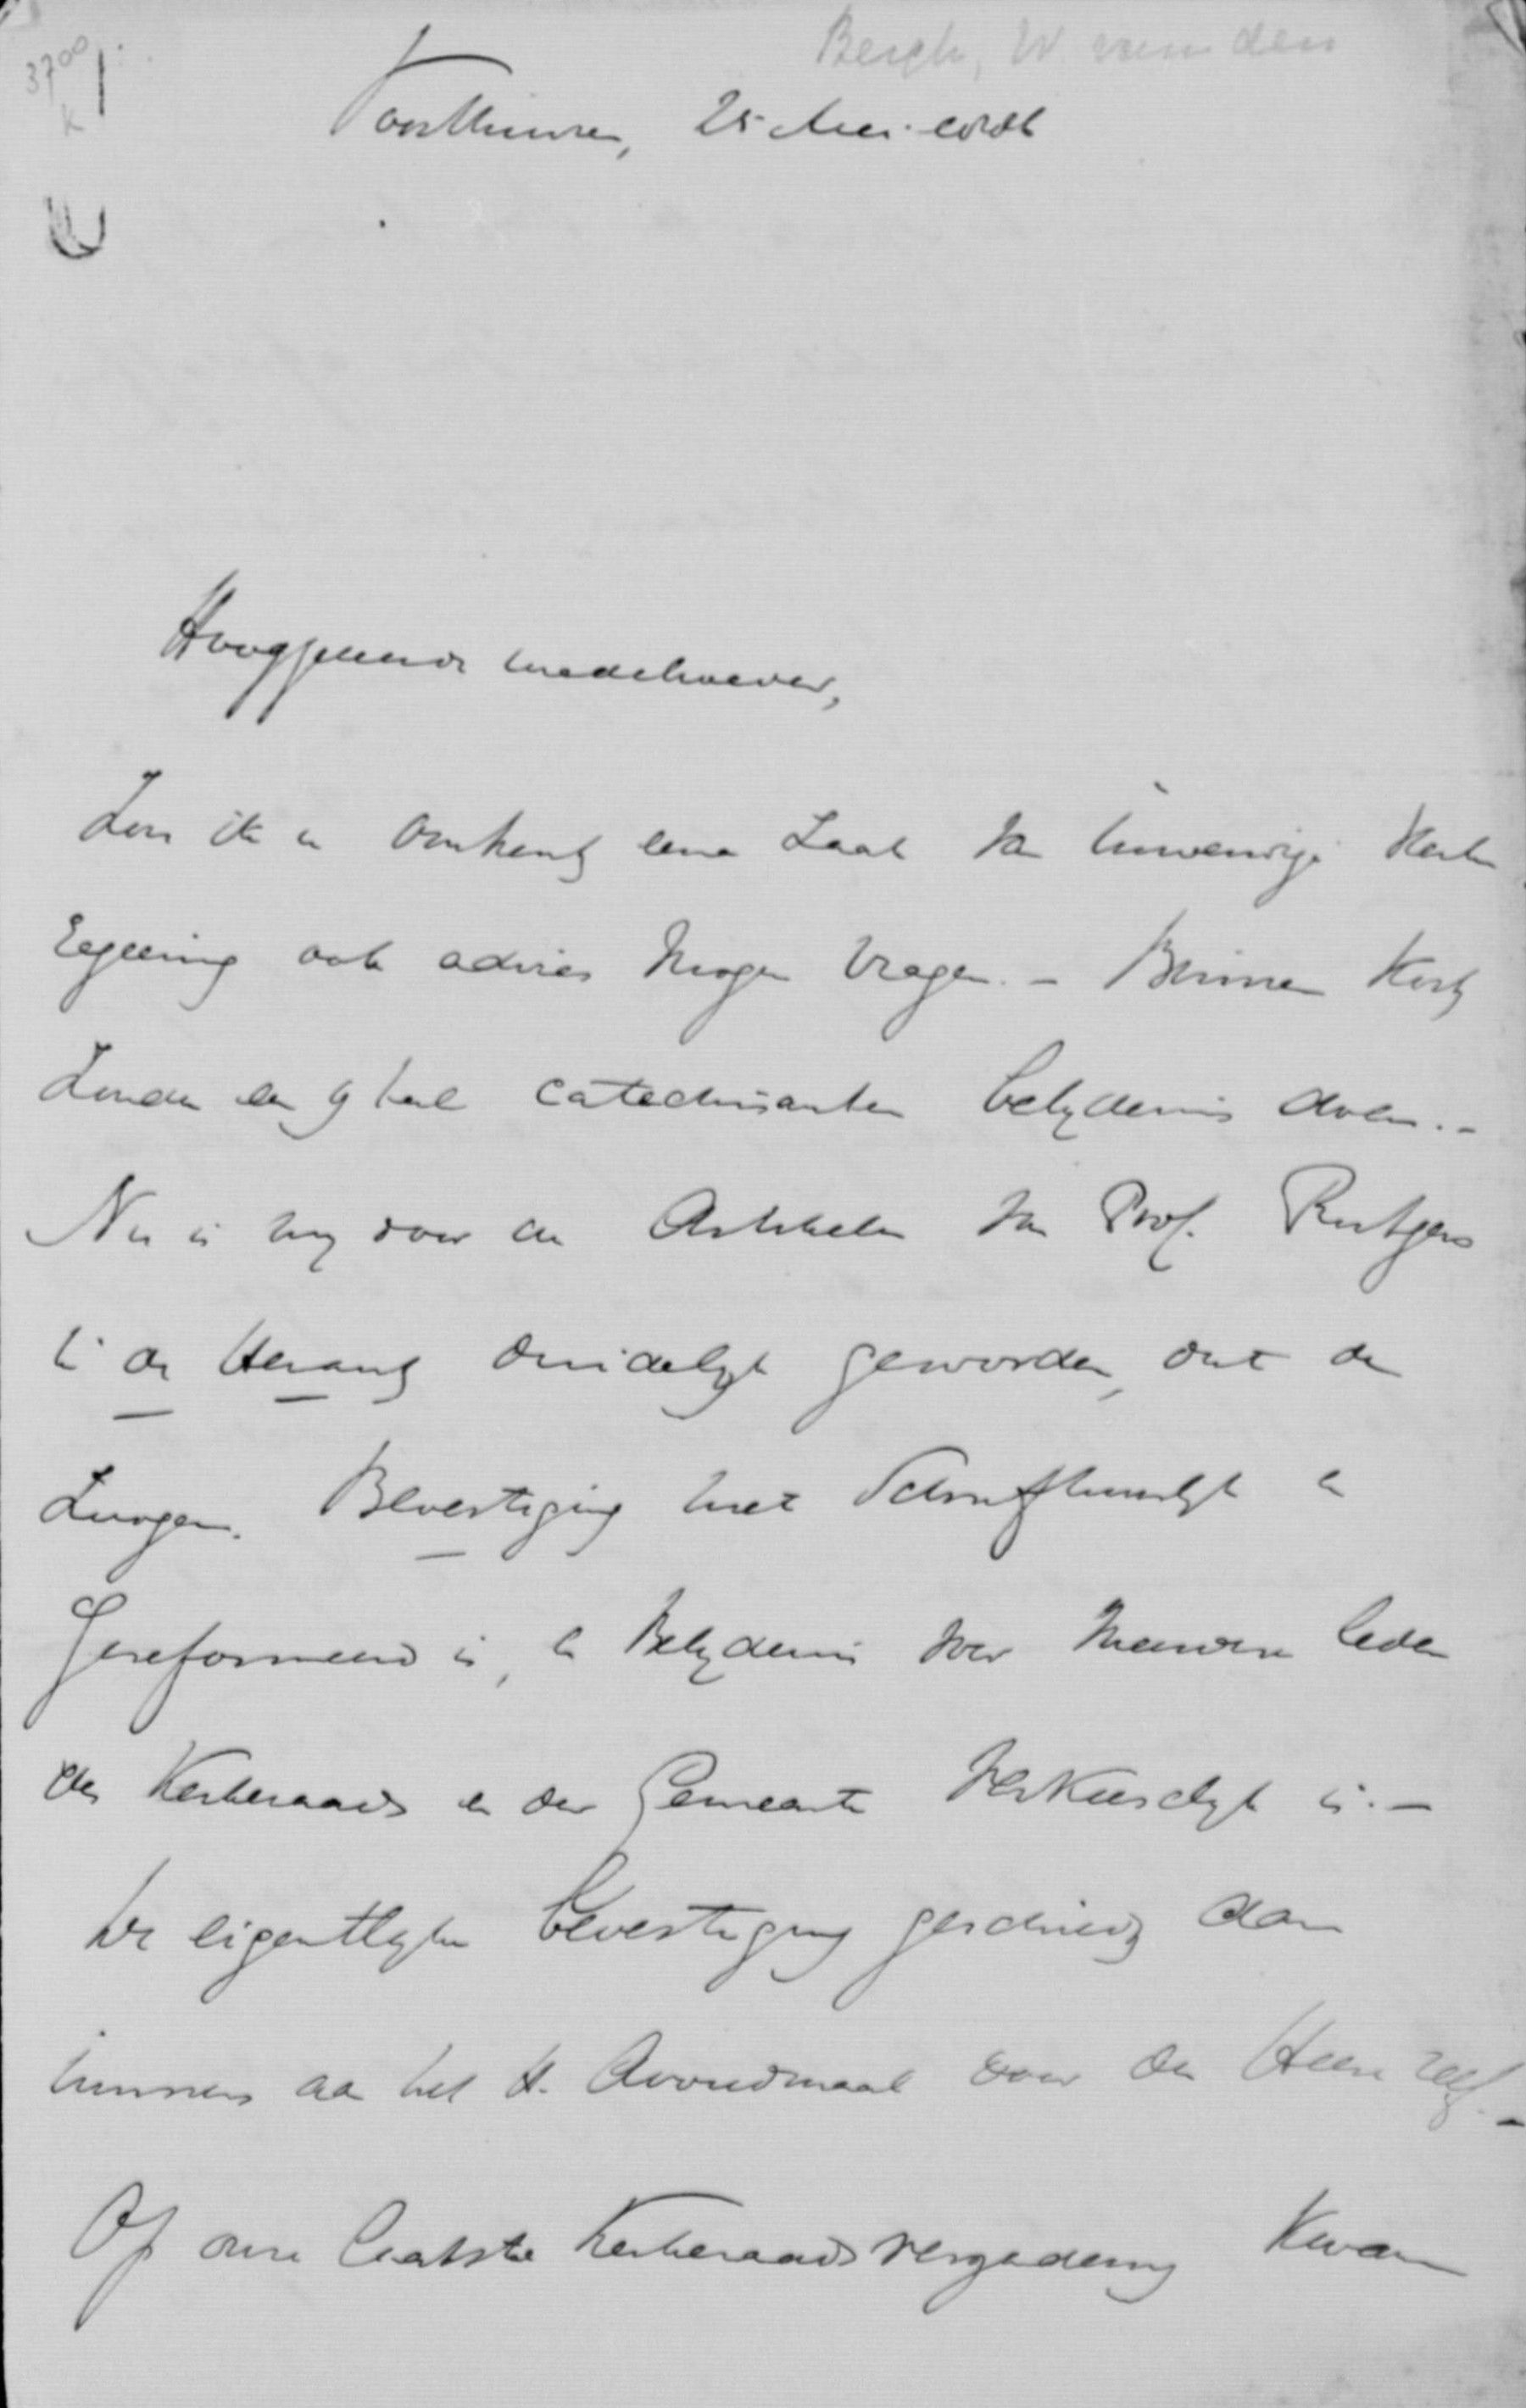 Bergh, W van den
3700
k
Voorthuizen, 25 Mei
Hooggeleerde medebroeder,
Zou ik u omtrent eene zaak van inwendige Kerk
regeering ook advies mogen vragen. - Binnen kort
zouden een 9 tal catechisanten belydenis doen. -
Nu is my door de Artikelen van Prof. Rutgers
in de Heraut duidelyk geworden, dat de
zoogen. Bevestiging niet Schriftuurlyk en
Gereformeerd is, en Belydenis voor meerdere leden
des Kerkeraads en der Gemeente verkieslyk is. -
De eigentlyke bevestiging geschiedt dan
immers aan het H. Avondmaal door den Heere zelf. -
Op onze laatste Kerkeraadsvergadering kwam